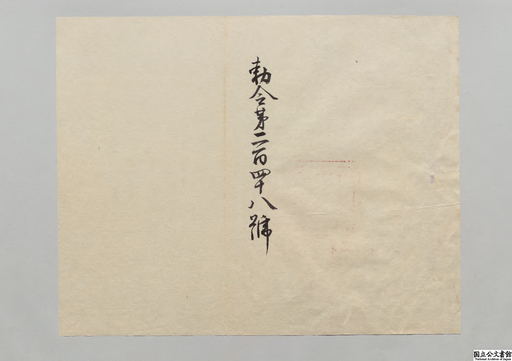 勅令第二百四十八號
国立公文書館
National Archives of Japan